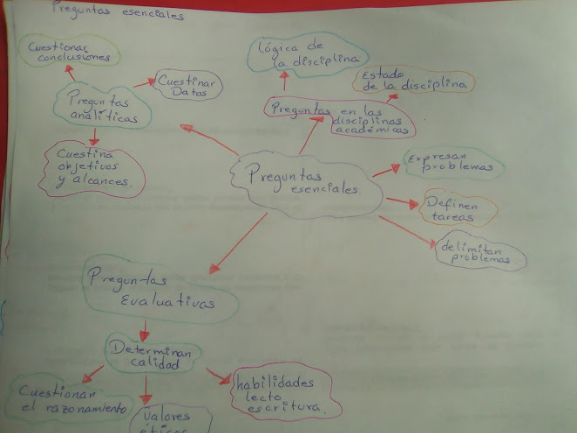 Preguntas esenciales
Cuestionar
conclusiones
Cuestinar
Datos
Preguntas
analíticas
Cuestina
objetivos
y alcances.
lógica de
la disciplina
Estado
de la disciplina
Preguntas en las
disciplinas
académicas
Preguntas
esenciales
Expresan
problemas
Definen
tareas
delimitan
problemas
Preguntas
Evaluativas
Determinan
calidad
Cuestionan
el razonamiento
Valores
éticos
habilidades
lecto
escritura.